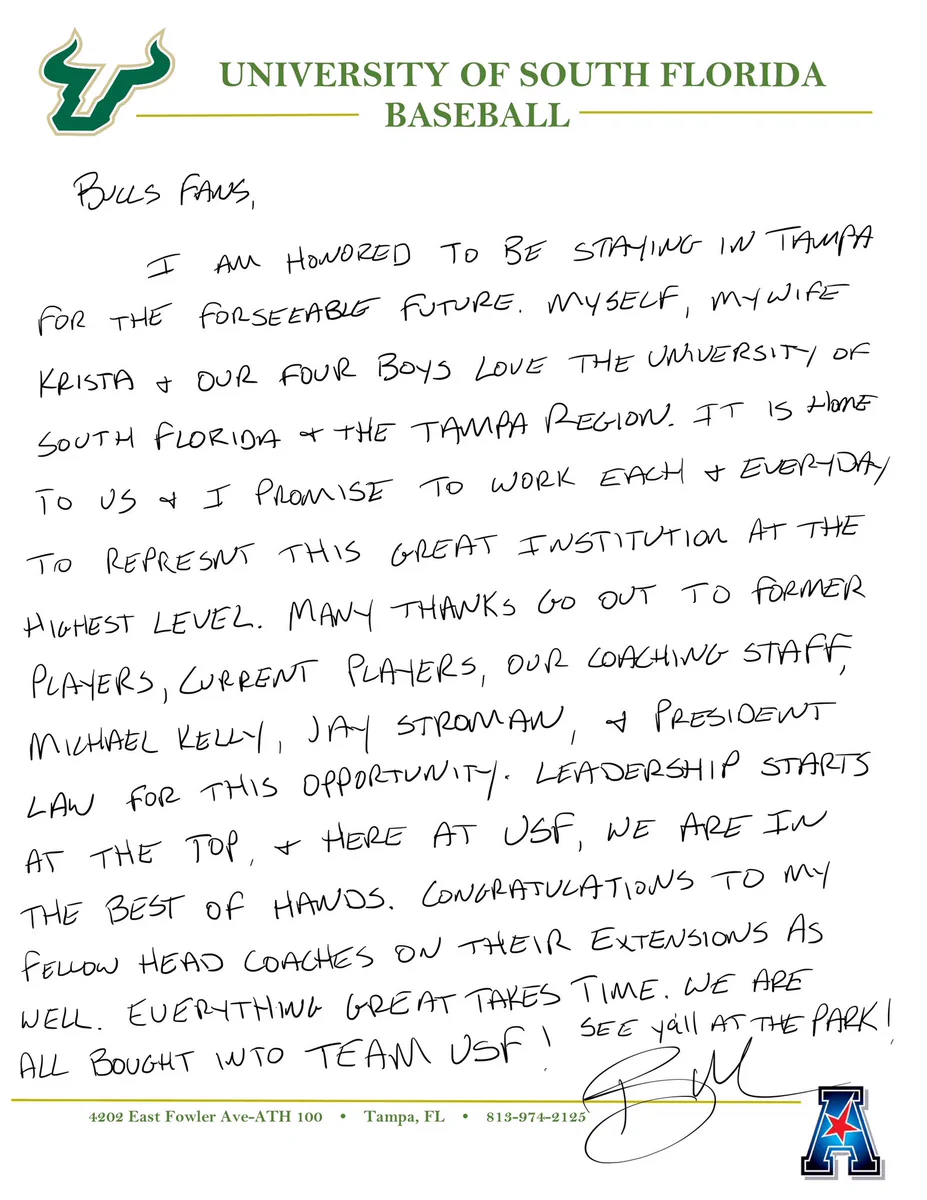 UNIVERSITY OF SOUTH FLORIDA
BASEBALL
BULLS FANS,
I AM HONORED TO BE STAYING IN TAMPA
FOR THE FORSEEABLE FUTURE. MYSELF, MY WIFE
KRISTA & OUR FOUR BOYS LOVE THE UNIVERSITY OF
SOUTH FLORIDA & THE TAMPA REGION. IT IS HOME
TO US & I PROMISE TO WORK EACH & EVERYDAY
TO REPRESNT THIS GREAT INSTITUTION AT THE
HIGHEST LEVEL. MANY THANKS GO OUT TO FORMER
PLAYERS, CURRENT PLAYERS, OUR COACHING STAFF,
MICHAEL KELLY, JAY STROMAN, & PRESIDENT
LAW FOR THIS OPPORTUNITY. LEADERSHIP STARTS
AT THE TOP, & HERE AT USF, WE ARE IN
THE BEST OF HANDS. CONGRATULATIONS TO MY
FELLOW HEAD COACHES ON THEIR EXTENSIONS AS
WELL. EVERYTHING GREAT TAKES TIME. WE ARE
ALL BOUGHT INTO TEAM USF! SEE ya'll AT THE PARK!
4202 East Fowler Ave-ATH 100 • Tampa, FL • 813-974-2125